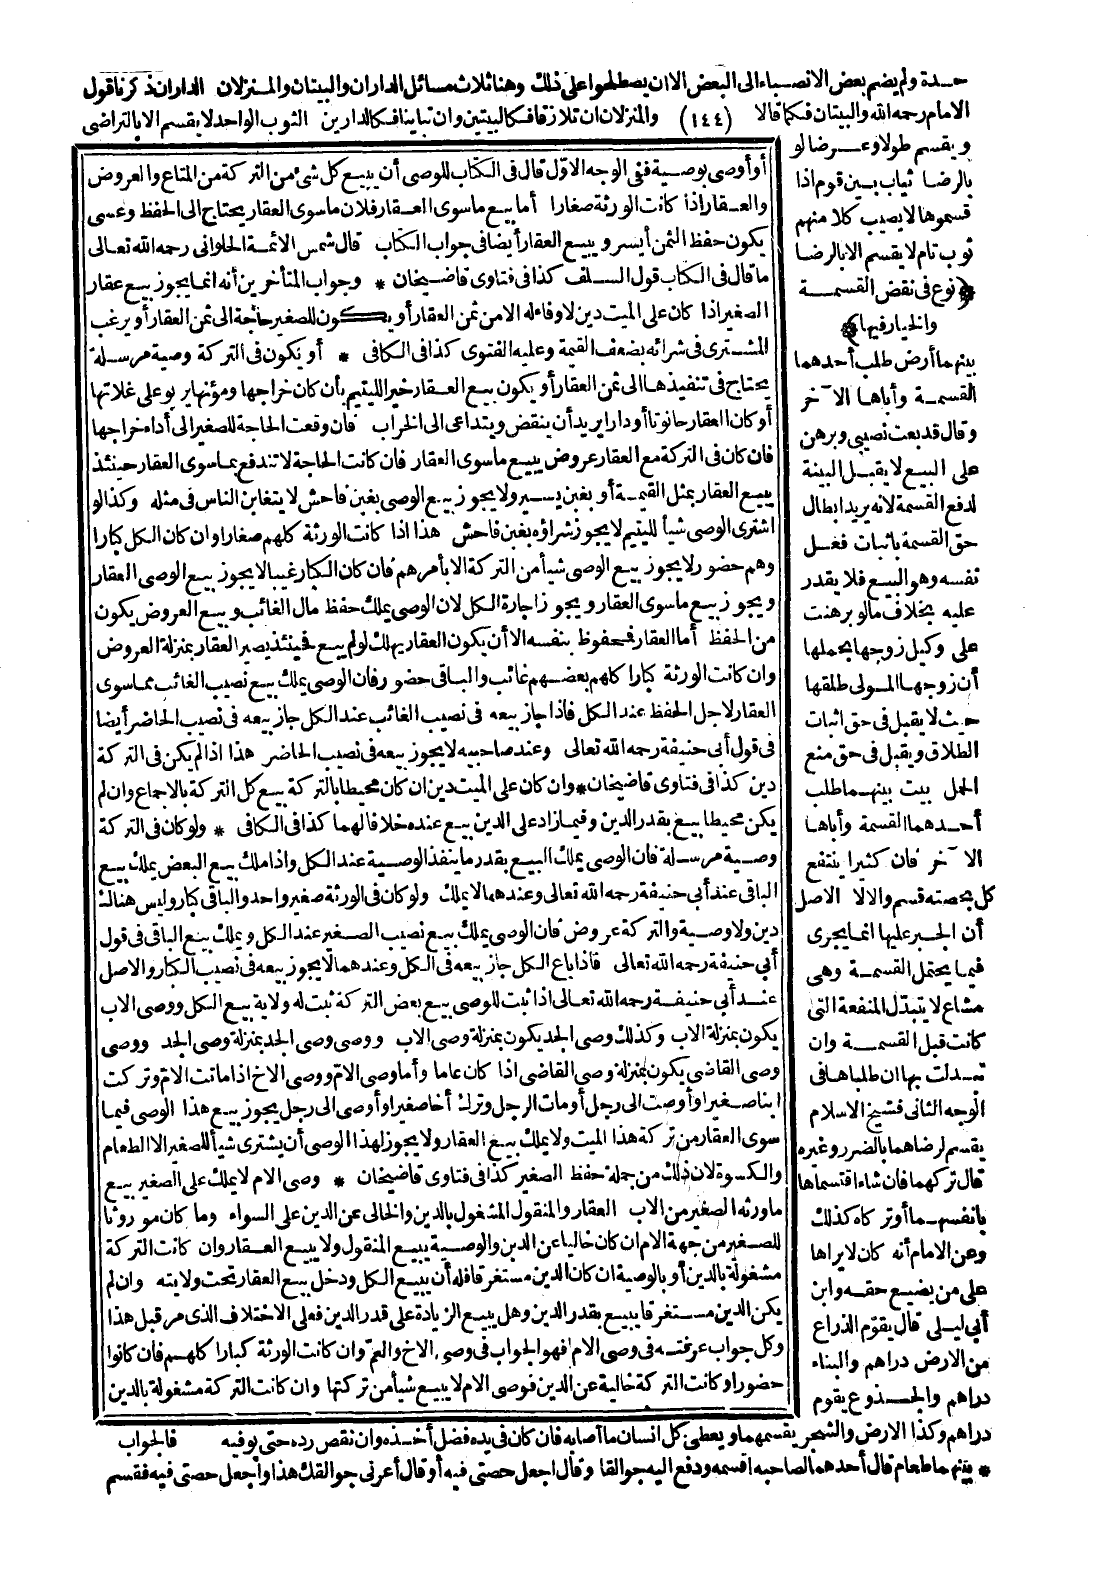 حدة ولم يضم بعض الانصباء الى البعض الا ان يصطلحوا على ذلك وهنا ثلاث مسائل الداران والبيتان والمنزلان الداران ذكرنا قول
الامام رحمه الله والبيتان فكما قالا (١٤٤) والمنزلان ان تلازقا فكالبيتين وان تباينا فكالدارين الثوب الواحد لا يقسم الا بالتراضى
ويقسم طولا وعرضا لو
بالرضا ثياب بين قوم اذا
قسموها لا يصيب كلا منهم
ثوب تام لا يقسم الا بالرضا
﴿نوع فى نقض القسمة
والخيار فيها﴾
بينهما أرض طلب أحدهما
القسمة وأباها الآخر
وقال قد بعت نصيبى وبرهن
على البيع لا يقبل البينة
لدفع القسمة لانه يريد ابطال
حق القسمة باثبات فعل
نفسه وهو البيع فلا يقدر
عليه بخلاف ما لو برهنت
على وكيل زوجها بحملها
أن زوجها المولى طلقها
حيث لا يقبل فى حق اثبات
الطلاق ويقبل فى حق منع
الحمل بيت بينهما طلب
أحدهما القسمة وأباها
الآخر فان كثيرا ينتفع
كل بحصته قسم والا لا الاصل
أن الجبر عليها انما يجرى
فيما يحتمل القسمة وهى
مشاع لا يتبدل المنفعة التى
كانت قبل القسمة وان
تبدلت بها ان طلباها فى
الوجه الثانى فشيخ الاسلام
يقسم لرضاهما بالضرر وغيره
قال تركهما فان شاءا اقتسماها
بانفسهما أو تركاه كذلك
وعن الامام أنه كان لا يراها
على من يضيع حقه وابن
أبى ليلى قال يقوم الذراع
من الارض دراهم والبناء
دراهم والجذوع يقوم
أو أوصى بوصية ففى الوجه الاول قال فى الكتاب للوصى أن يبيع كل شئ من التركة من المتاع والعروض
والعقار اذا كانت الورثة صغارا أما بيع ما سوى العقار فلان ما سوى العقار يحتاج الى الحفظ وعسى
يكون حفظ الثمن أيسر ويبيع العقار أيضا فى جواب الكتاب قال شمس الائمة الحلوانى رحمه الله تعالى
ما قال فى الكتاب قول السلف كذا فى فتاوى قاضيخان * وجواب المتأخرين أنه انما يجوز بيع عقار
الصغير اذا كان على الميت دين لا وفاء له الا من ثمن العقار أو يكون للصغير حاجة الى ثمن العقار أو يرغب
المشترى فى شرائه بضعف القيمة وعليه الفتوى كذا فى الكافى * أو يكون فى التركة وصية مرسلة
يحتاج فى تنفيذها الى ثمن العقار أو يكون بيع العقار خيرا لليتيم بأن كان خراجها ومؤنها يربو على غلاتها
أو كان العقار حانوتا أو دارا يريد أن ينقض ويتداعى الى الخراب فان وقعت الحاجة للصغير الى أداء خراجها
فان كان فى التركة مع العقار عروض يبيع ما سوى العقار فان كانت الحاجة لا تندفع بما سوى العقار حينئذ
يبيع العقار بمثل القيمة أو بغبن يسير ولا يجوز بيع الوصى بغبن فاحش لا يتغابن الناس فى مثله وكذا لو
اشترى الوصى شيأ لليتيم لا يجوز شراؤه بغبن فاحش هذا اذا كانت الورثة كلهم صغارا وان كان الكل كبارا
وهم حضور لا يجوز بيع الوصى شيأ من التركة الا بأمرهم فان كان الكبار غيبا لا يجوز بيع الوصى العقار
ويجوز بيع ما سوى العقار ويجوز اجارة الكل لان الوصى يملك حفظ مال الغائب وبيع العروض يكون
من الحفظ أما العقار فمحفوظ بنفسه الا أن يكون العقار يهلك لو لم يبع فحينئذ يصير العقار بمنزلة العروض
وان كانت الورثة كبارا كلهم بعضهم غائب والباقى حضور فان الوصى يملك بيع نصيب الغائب مما سوى
العقار لاجل الحفظ عند الكل فاذا جاز بيعه فى نصيب الغائب عند الكل جاز بيعه فى نصيب الحاضر أيضا
فى قول أبى حنيفة رحمه الله تعالى وعند صاحبيه لا يجوز بيعه فى نصيب الحاضر هذا اذا لم يكن فى التركة
دين كذا فى فتاوى قاضيخان * وان كان على الميت دين ان كان محيطا بالتركة بيع كل التركة بالاجماع وان لم
يكن محيطا بيع بقدر الدين وفيما زاد على الدين بيع عنده خلافا لهما كذا فى الكافى * ولو كان فى التركة
وصية مرسلة فان الوصى يملك البيع بقدر ما ينفذ الوصية عند الكل واذا ملك بيع البعض يملك بيع
الباقى عند أبى حنيفة رحمه الله تعالى وعندهما لا يملك ولو كان فى الورثة صغير واحد والباقى كبار وليس هناك
دين ولا وصية والتركة عروض فان الوصى يملك بيع نصيب الصغير عند الكل ويملك بيع الباقى فى قول
أبى حنيفة رحمه الله تعالى فاذا باع الكل جاز بيعه فى الكل وعندهما لا يجوز بيعه فى نصيب الكبار والاصل
عند أبى حنيفة رحمه الله تعالى اذا ثبت للوصى بيع بعض التركة ثبت له ولاية بيع الكل ووصى الاب
يكون بمنزلة الاب وكذلك وصى الجد يكون بمنزلة وصى الاب ووصى وصى الجد بمنزلة وصى الجد ووصى
وصى القاضى يكون بمنزلة وصى القاضى اذا كان عاما وأما وصى الام ووصى الاخ اذا ماتت الام وتركت
ابنا صغيرا وأوصت الى رجل أو مات الرجل وترك أخا صغيرا وأوصى الى رجل يجوز بيع هذا الوصى فيما
سوى العقار من تركة هذا الميت ولا يملك بيع العقار ولا يجوز لهذا الوصى أن يشترى شيأ للصغير الا الطعام
والكسوة لان ذلك من جملة حفظ الصغير كذا فى فتاوى قاضيخان * وصى الام لا يملك على الصغير بيع
ما ورثه الصغير من الاب العقار والمنقول المشغول بالدين والخالى عن الدين على السواء وما كان موروثا
للصغير من جهة الام ان كان خاليا عن الدين والوصية يبيع المنقول ولا يبيع العقار وان كانت التركة
مشغولة بالدين أو بالوصية ان كان الدين مستغرقا فله أن يبيع الكل ودخل بيع العقار تحت ولايته وان لم
يكن الدين مستغرقا يبيع بقدر الدين وهل يبيع الزيادة على قدر الدين فعلى الاختلاف الذى مر قبل هذا
وكل جواب عرفته فى وصى الام فهو الجواب فى وصى الاخ والعم وان كانت الورثة كبارا كلهم فان كانوا
حضورا وكانت التركة خالية عن الدين فوصى الام لا يبيع شيأ من تركتها وان كانت التركة مشغولة بالدين
دراهم وكذا الارض والشجر يقسمهما ويعطى كل انسان ما أصابه فان كان فى يده فضل أخذه وان نقص رده حتى يوفيه فالجواب
* بينهما طعام قال أحدهما لصاحبه اقسمه ودفع اليه جوالقا وقال اجعل حصتى فيه أو قال أعرنى جوالقك هذا واجعل حصتى فيه فقسم